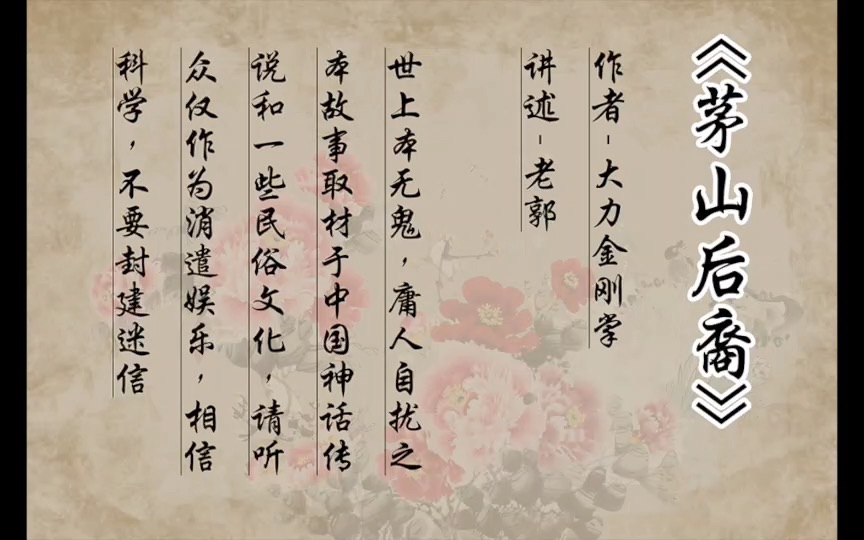 《茅山后裔》
作者-大力金刚掌
讲述-老郭
世上本无鬼，庸人自扰之
本故事取材于中国神话传
说和一些民俗文化，请听
众仅作为消遣娱乐，相信
科学，不要封建迷信